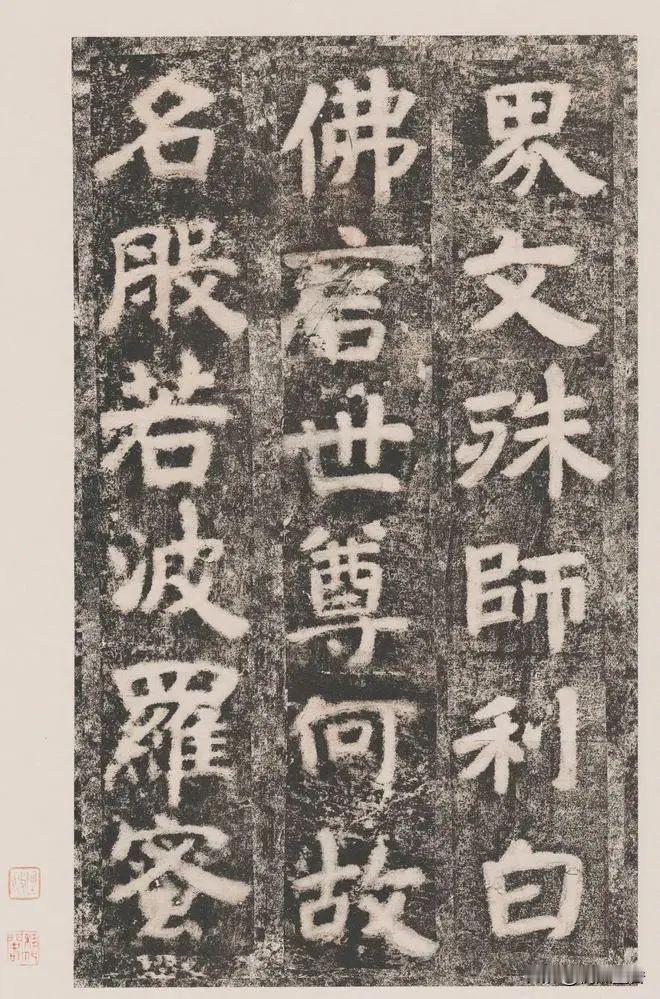 界文殊師利白
佛言世尊何故
名般若波羅蜜